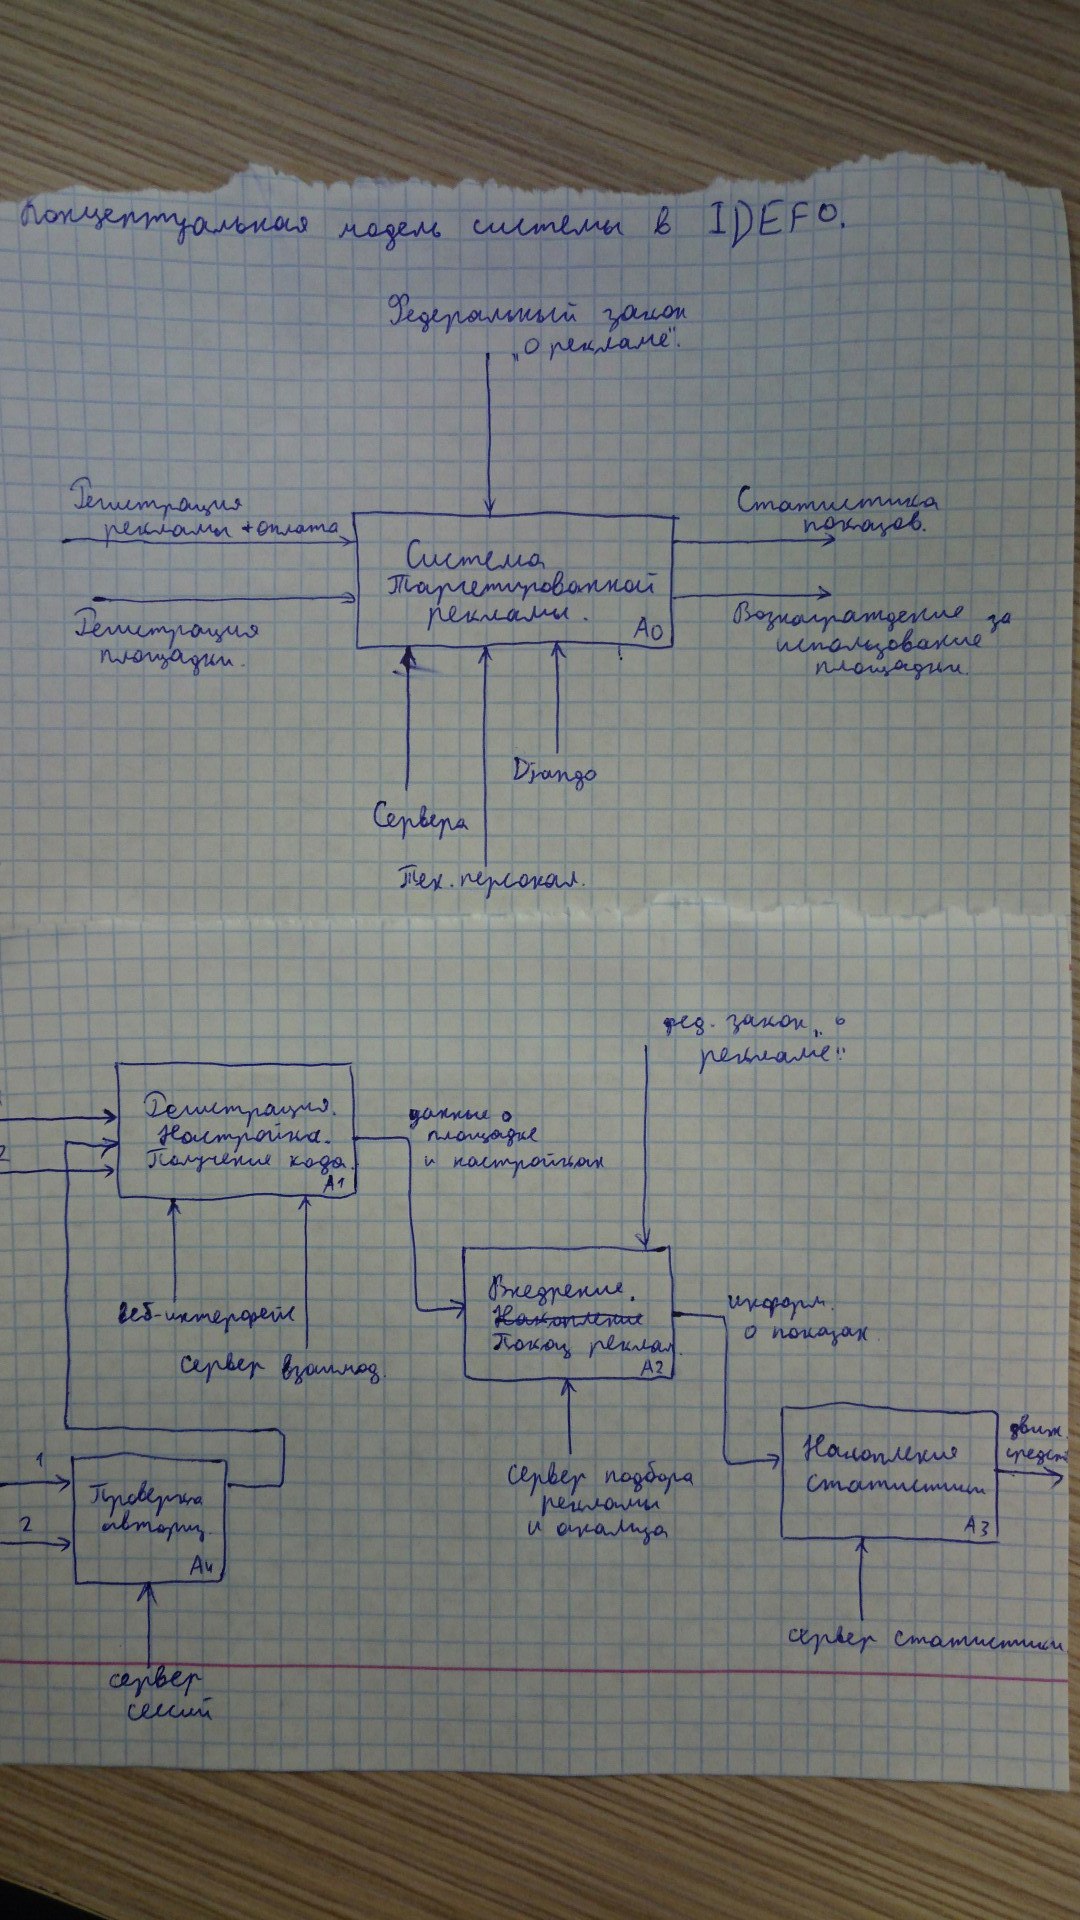 Концептуальная модель системы в IDEF0.
Федеральный закон
„О рекламе".
Регистрация
рекламы + оплата
Статистика
показов.
Система
Таргетированной
рекламы.
A0
Регистрация
площадки.
Вознаграждение за
использование
площадки.
Django
Сервера
Тех. персонал.
фед. закон „о
рекламе"
Регистрация.
Настройка.
Получение кода.
A1
2
данные о
площадке
и настройках
веб-интерфейс
Сервер взаимод.
Внедрение.
Накопление
Показ реклам.
A2
информ.
о показах
1
2
Проверка
авториз.
A4
Сервер подбора
рекламы
и анализа
Накопления
статистики
A3
движ.
средств
сервер статистики
сервер
сессий